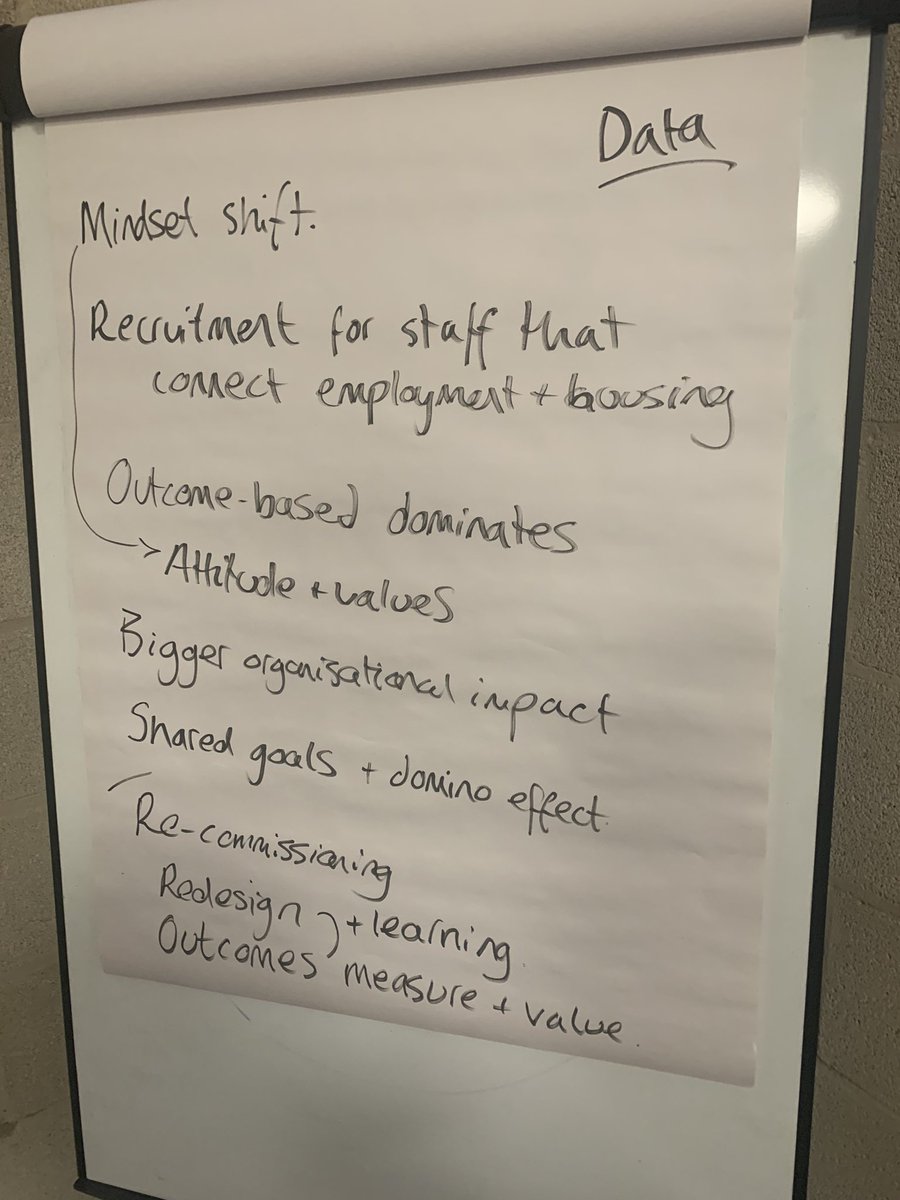 Data
Mindset shift.
Recruitment for staff that
connect employment + housing
Outcome-based dominates
Attitude + values
Bigger organisational impact
Shared goals + domino effect.
Re-commissioning
Redesign + learning
Outcomes measure + value.